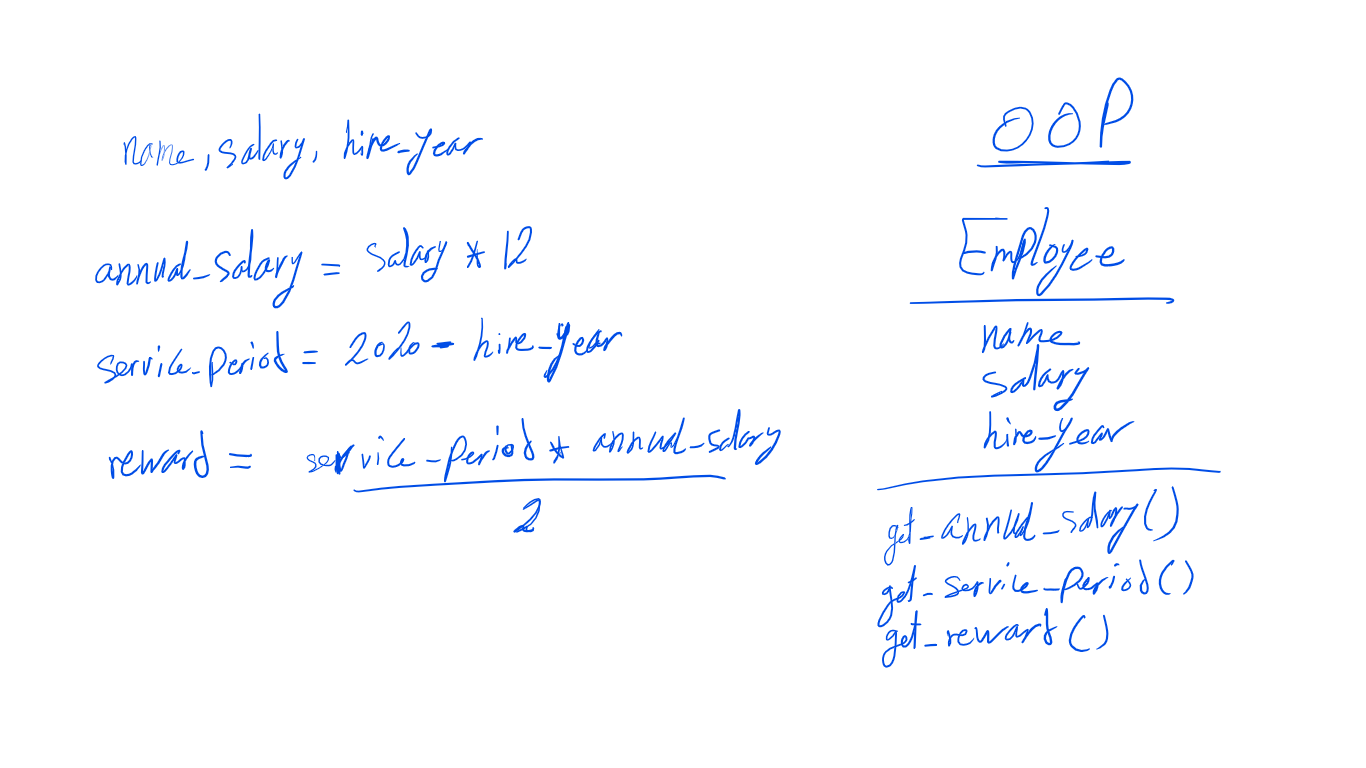 name, salary, hire_year
annual_salary = salary * 12
service_period = 2020 - hire_year
reward = service_period * annual_salary
2
OOP
Employee
name
salary
hire_year
get_annual_salary()
get_service_period()
get_reward()